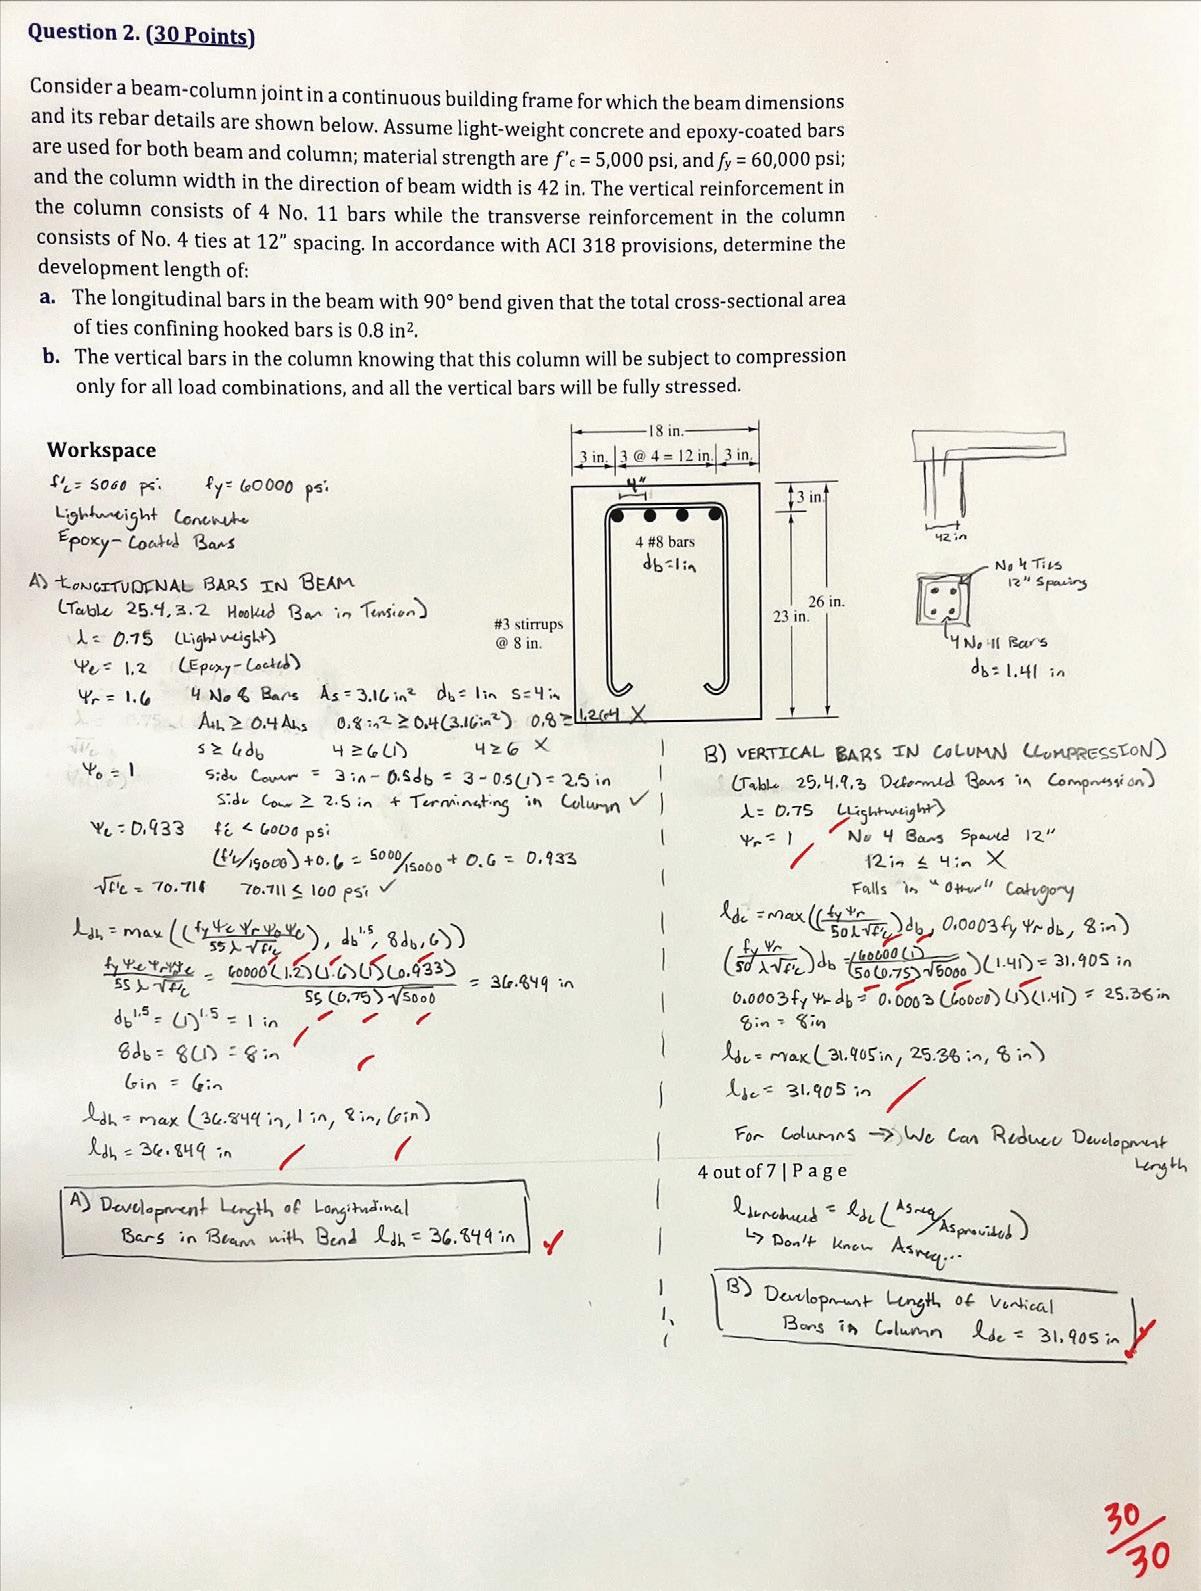 Question 2. (30 Points)
Consider a beam-column joint in a continuous building frame for which the beam dimensions
and its rebar details are shown below. Assume light-weight concrete and epoxy-coated bars
are used for both beam and column; material strength are f'c = 5,000 psi, and fy = 60,000 psi;
and the column width in the direction of beam width is 42 in. The vertical reinforcement in
the column consists of 4 No. 11 bars while the transverse reinforcement in the column
consists of No. 4 ties at 12" spacing. In accordance with ACI 318 provisions, determine the
development length of:
a. The longitudinal bars in the beam with 90° bend given that the total cross-sectional area
of ties confining hooked bars is 0.8 in².
b. The vertical bars in the column knowing that this column will be subject to compression
only for all load combinations, and all the vertical bars will be fully stressed.
Workspace
18 in.
3 in. 3 @ 4 = 12 in. 3 in.
4"
3 in.
4 #8 bars
db = 1in
#3 stirrups
@ 8 in.
23 in.
26 in.
42 in
No 4 Ties
12" Spacing
4 No 11 Bars
db = 1.41 in
f'c = 5000 psi fy = 60000 psi
Lightweight Concrete
Epoxy-Coated Bars
A) LONGITUDINAL BARS IN BEAM
(Table 25.4.3.2 Hooked Bar in Tension)
λ = 0.75 (Lightweight)
Ψe = 1.2 (Epoxy-Coated)
Ψr = 1.6 4 No 8 Bars As = 3.16 in² db = 1in s = 4 in
Ath ≥ 0.4 Ahs 0.8 in² ≥ 0.4(3.16in²) 0.8 ≥ 1.264 X
s ≥ 6db 4 ≥ 6(1) 4 ≥ 6 X
Ψo = 1 Side Cover = 3 in - 0.5db = 3 - 0.5(1) = 2.5 in
Side Cover ≥ 2.5 in + Terminating in Column ✓
Ψc = 0.933 f'c < 6000 psi
(f'c/15000) + 0.6 = 5000/15000 + 0.6 = 0.933
√f'c = 70.711 70.711 ≤ 100 psi ✓
ldh = max((fyΨeΨrΨoΨc / 55λ√f'c), db^1.5, 8db, 6))
fyΨeΨrΨoΨc / 55λ√f'c = 60000(1.2)(1.6)(1)(0.933) / 55(0.75)√5000 = 36.849 in
db^1.5 = (1)^1.5 = 1 in
8db = 8(1) = 8 in
6in = 6in
ldh = max(36.849 in, 1 in, 8 in, 6in)
ldh = 36.849 in
A) Development Length of Longitudinal
Bars in Beam with Bend ldh = 36.849 in
B) VERTICAL BARS IN COLUMN (COMPRESSION)
(Table 25.4.9.3 Deformed Bars in Compression)
λ = 0.75 (Lightweight)
Ψr = 1 No 4 Bars Spaced 12"
12in ≤ 4in X
Falls in "Other" Category
ldc = max((fyΨr / 50λ√f'c)db, 0.0003fyΨrdb, 8in)
(fyΨr / 50λ√f'c)db = (60000(1) / 50(0.75)√5000)(1.41) = 31.905 in
0.0003fyΨrdb = 0.0003(60000)(1)(1.41) = 25.38 in
8in = 8in
ldc = max(31.905in, 25.38 in, 8 in)
ldc = 31.905 in
For Columns → We Can Reduce Development
Length
4 out of 7 | Page
ldcreduced = ldc(Asreq/Asprovided)
↳ Don't Know Asreq...
B) Development Length of Vertical
Bars in Column ldc = 31.905 in
30/30